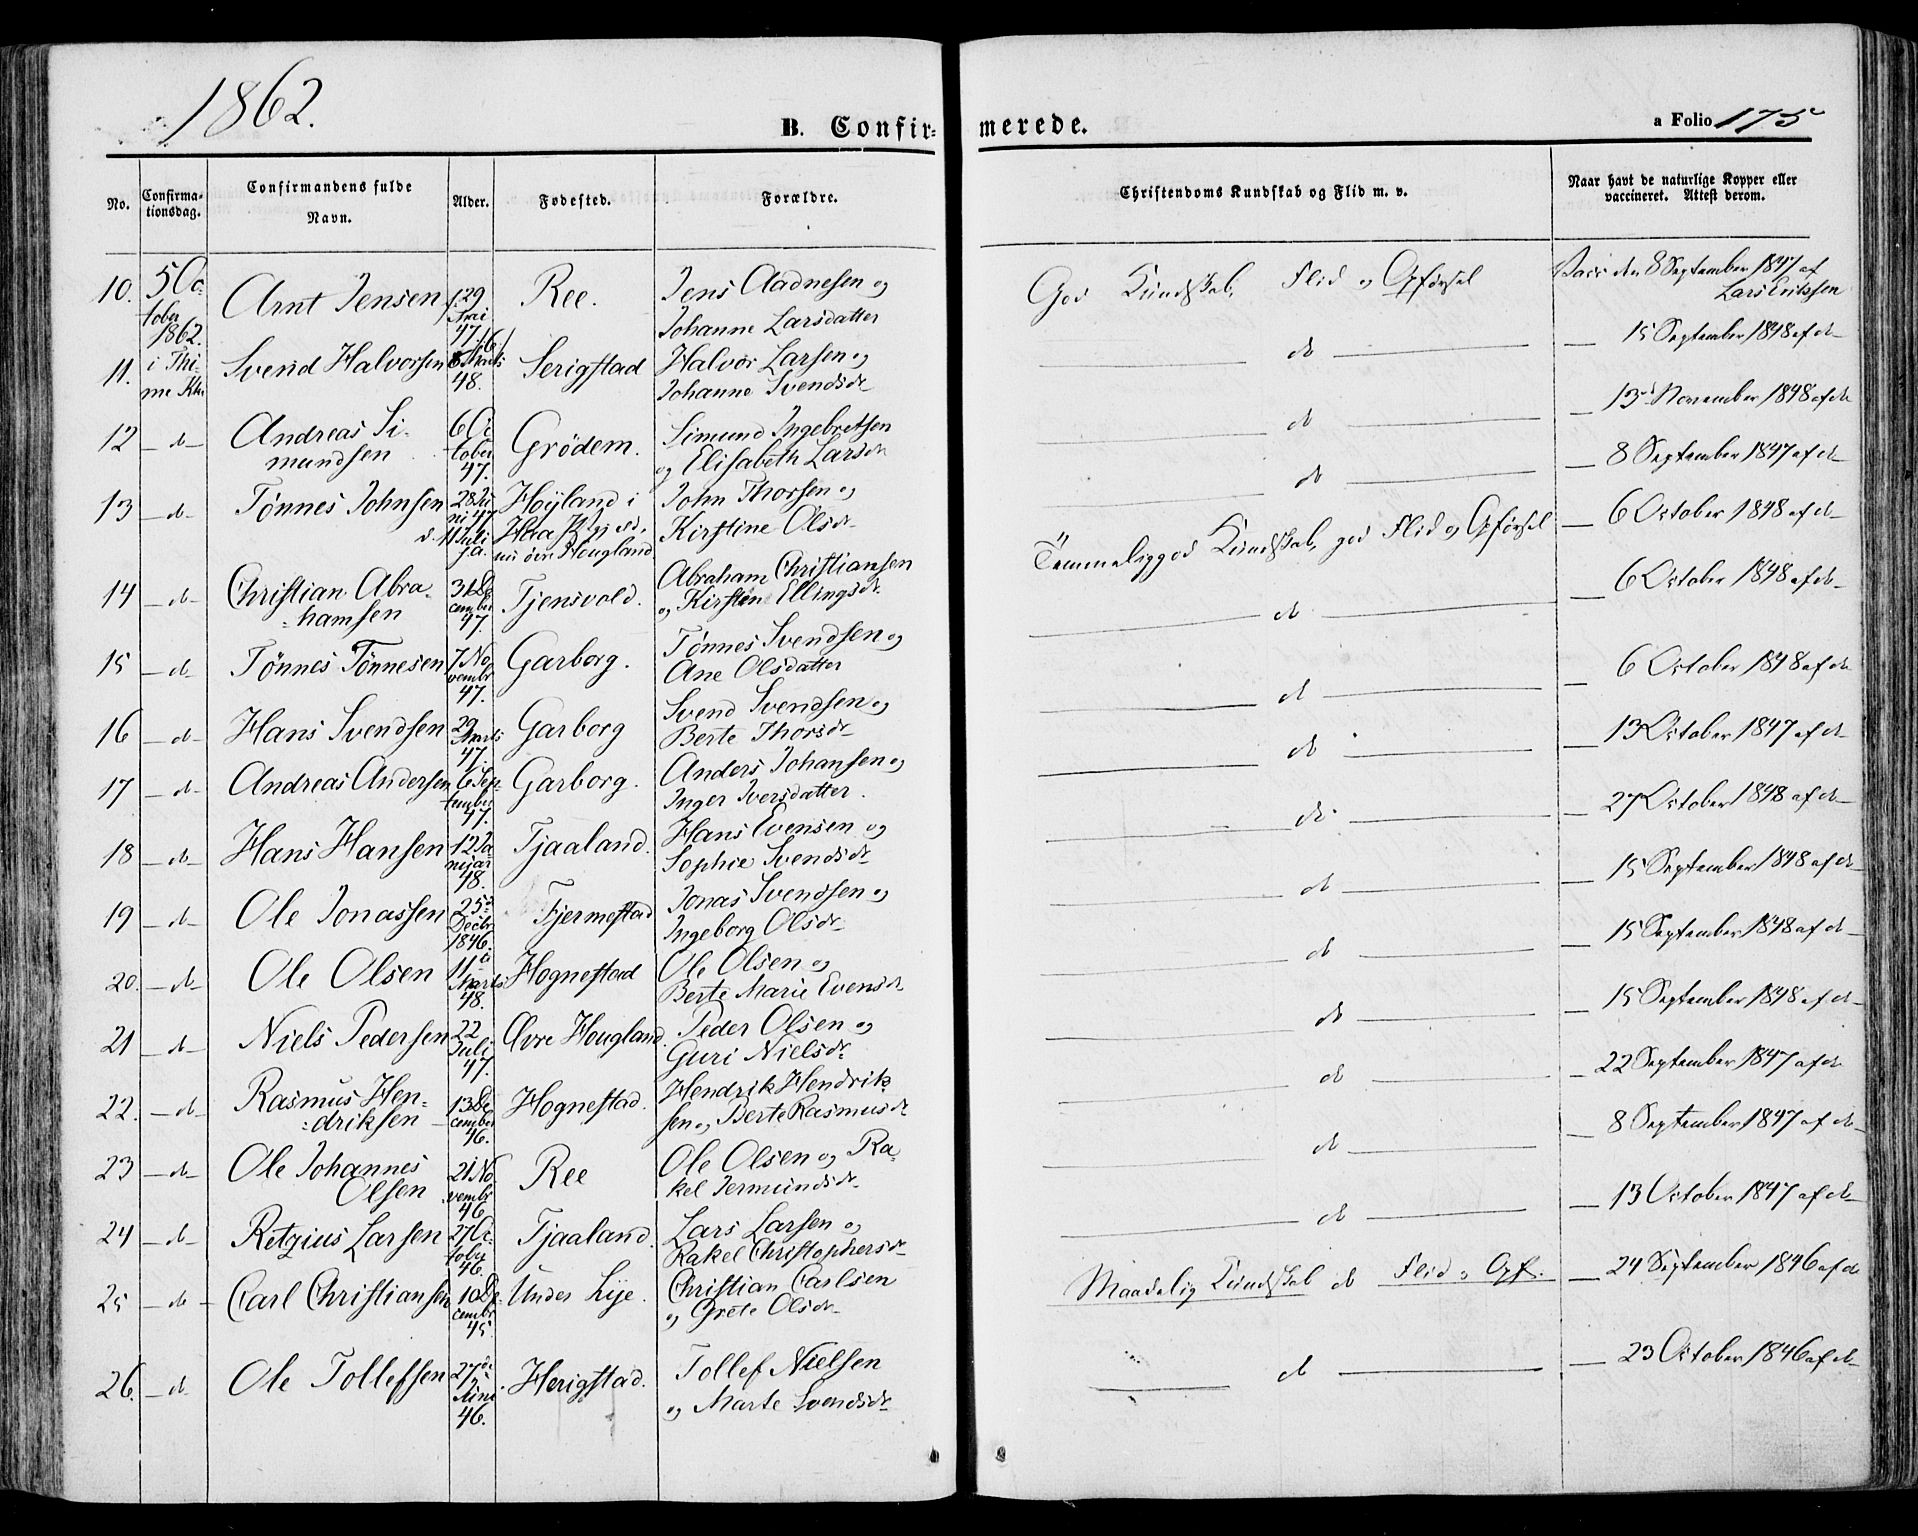 1862.
B. Confir- merede.
a Folio 175
No. Confirma-tionsdag. Confirmandens fulde Navn. Alder. Fødested. Forældre. Christendoms Kundskab og Flid m. v. Naar havt de naturlige Kopper eller vaccineret. Attest derom.
10. 5 Oc-tober 1862. Arnt Jensen 29 47 Ree. Jens Aadnesen og Johanne Larsdatter God Kundskab, Flid og Opførsel Vacc den 8 September 1847 af Lars Eritssen
11. i Thi-me Kke Svend Halvorsen Marts 48. Serigstad Halvor Larsen og Johanne Svendsdr d 15 September 1848 af d
12 d Andreas Si-mundsen 6 Oc-tober 47. Grödem. Simund Ingebretsen og Elisabeth Larsdr d 13 November 1848 af d
13 d Tönnes Johnsen 28 Ju-ni 47 d. 11 Juli Høyland i nu övre Hougland John Thorsen og Kirstine Olsdr d 8 September 1847 af d
14 d Christian Abra-hamsen 31 De-cember 47. Tjensvold. Abraham Christiansen og Kirsten Ellingsdr Temmelig god Kundskab, god Flid og Opførsel 6 October 1848 af d
15 d Tönnes Tönnesen 7 No-vembr 47. Garborg. Tönnes Svendsen og Ane Olsdatter d 6 October 1848 af d
16 d Hans Svendsen 29 Marts 47. Garborg Svend Svendsen og Berte Thorsdr d 6 October 1848 af d
17 d Andreas Andersen 6 Sep-tember 47. Garborg. Anders Johansen og Inger Iversdatter. d 13 October 1847 af d
18 d Hans Hansen 12 Ja-nuar 48. Tjaaland. Hans Evensen og Sophie Svendsdr d 27 October 1848 af d
19 d Ole Jonassen 25 Decbr 1846. Fjermestad Jonas Svendsen og Ingeborg Olsdr d 15 September 1848 af d
20. d Ole Olsen 11 Marts 48. Hognestad Ole Olsen og Berte Marie Evensdr d 15 September 1848 af d
21 d Niels Pedersen 22 Juli 47. Övre Hougland. Peder Olsen og Guri Nielsdr d 15 September 1848 af d
22. d Rasmus Hen-driksen 13 De-cember 46. Hognestad. Hendrik Hendrik-sen og Berte Rasmusdr d 22 September 1847 af d
23 d Ole Johannes Olsen 21 No-vembr 46 Ree Ole Olsen og Ra-kel Jermundsdr d 8 September 1847 af d
24 d Retzius Larsen 27 Oc-tober 46. Tjaaland. Lars Larsen og Rakel Christophersdr d 13 October 1847 af d
25 d Carl Christiansen 10 De-cembr 45 Under Lye. Christian Carlsen og Grete Olsdr Maadelig Kundskab d Flid og Opf. 24 September 1846 af d
26. d Ole Tollefsen 27de Juni 46. Herigstad. Tollef Nielsen og Marte Svendsdr d 23 October 1846 af d